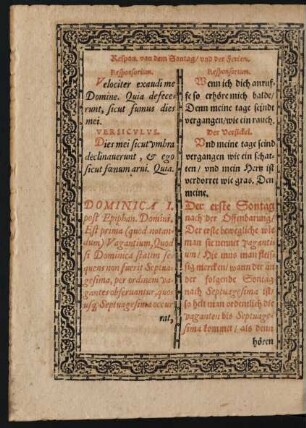 Respon. von dem Sontag/ vnd der Ferien.
Responsorium.
Velociter exaudi me
Domine. Quia defece-
runt, sicut fumus dies
mei.
VERSICVLVS.
Dies mei sicut vmbra
declinauerunt, & ego
sicut fœnum arui. Quia.
DOMINICA I.
post Epiphan. Domini,
Est prima (quod notan-
dum) Vagantium, Quod
si Dominica statim se-
quente non fuerit Septua-
gesima, per ordinem va-
gantes obseruantur, quo-
usq; Septuagesima occur
rat,
Responsorium.
Wenn ich dich anruf-
fe so erhöre mich balde/
Denn meine tage seindt
vergangen/wie ein rauch.
Der Versickel.
Vnd meine tage seind
vergangen wie ein schat-
ten/ vnd mein Hertz ist
verdorret wie gras. Den
meine.
Der erste Sontag
nach der Offenbarung/
Der erste bewegliche wie
man sie nennet vaganti-
um/ Hie mus man fleis-
sig mercken/ wann
der folgende Sontag
nach Septuagesima ist/
so helt man ordentlich die
vaganten bis Septuage-
sima kommet/ als denn
hören